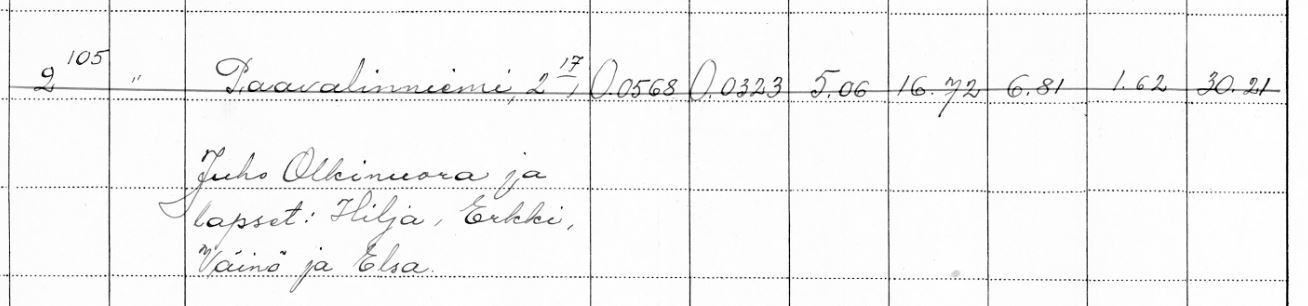 2 105 " Paavalinniemi, 2 17 0.0568 0.0323 5.06 16.72 6.81 1.62 30.21
Juho Olkinuora ja
lapset: Hilja, Erkki,
Väinö ja Elsa.